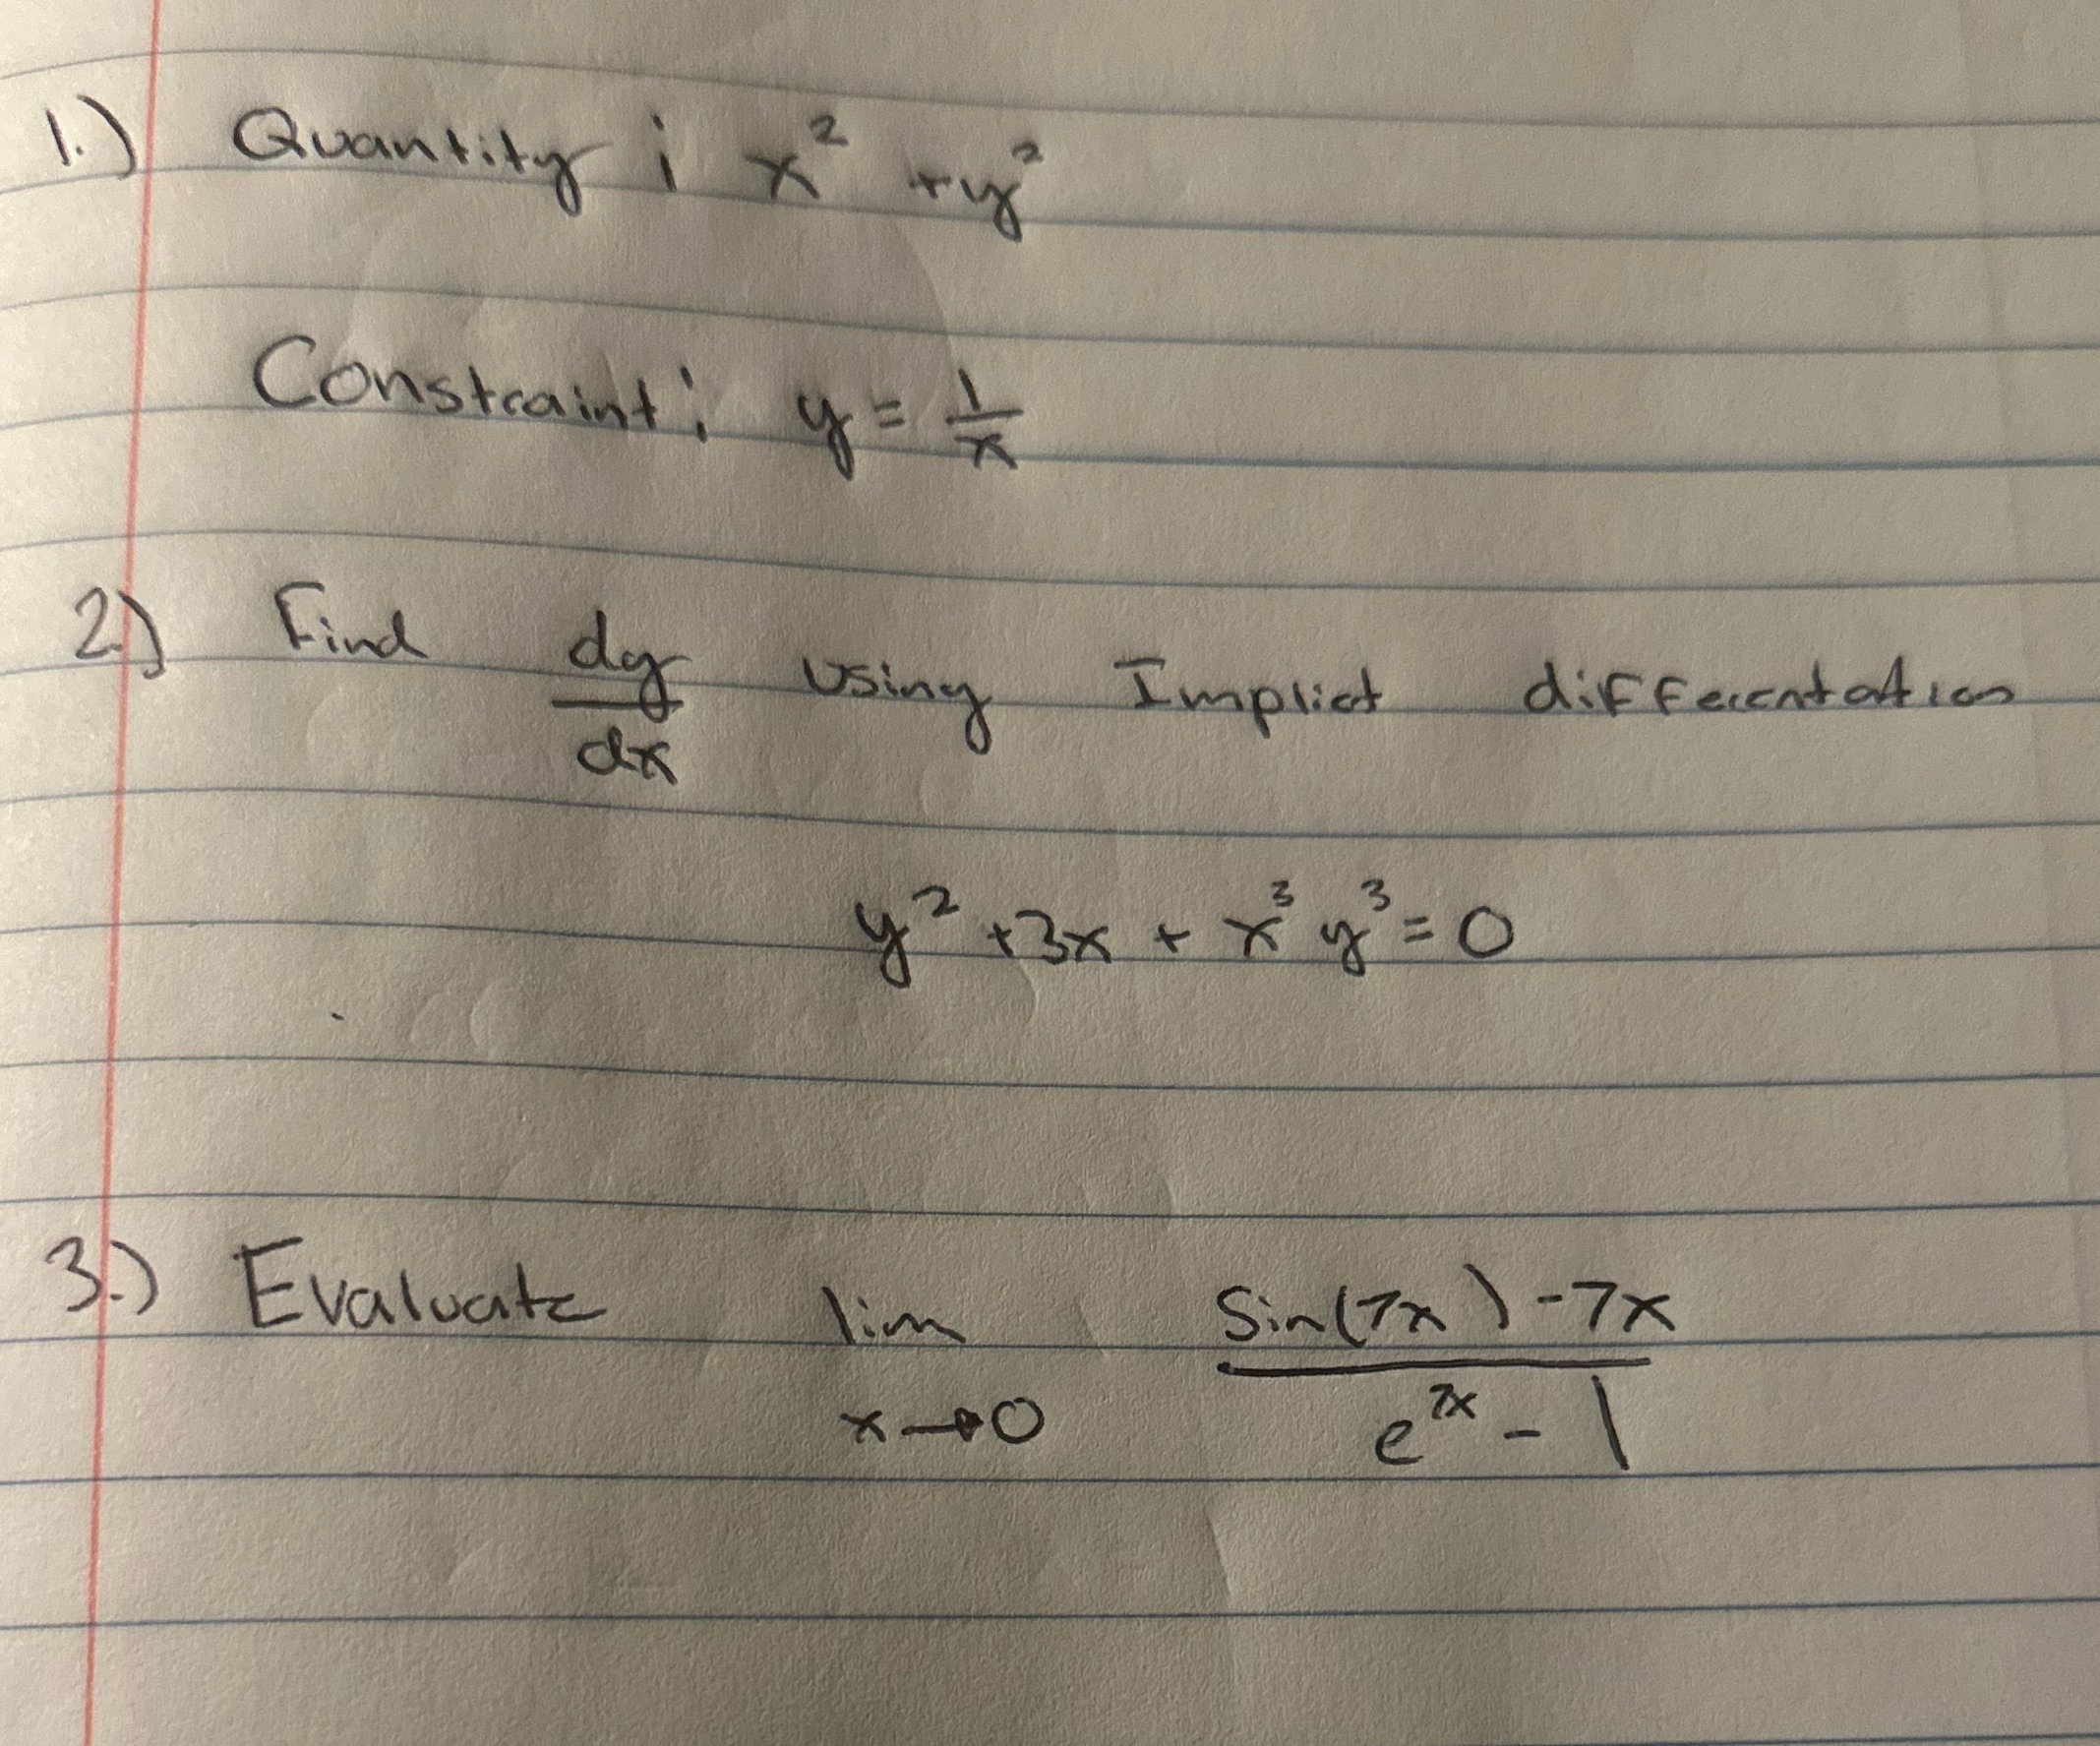 1.) Quantity : x² + y²
Constraint : y = 1/x
2.) Find dy/dx Using Implict differentation
y² + 3x + x³ y³ = 0
3.) Evaluate lim x→0 (Sin(7x) - 7x)/(e^7x - 1)